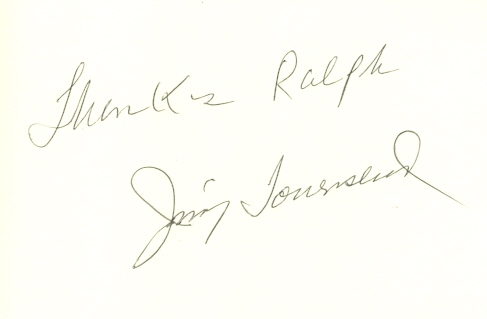 Thanks Ralph
Jimy Townsend